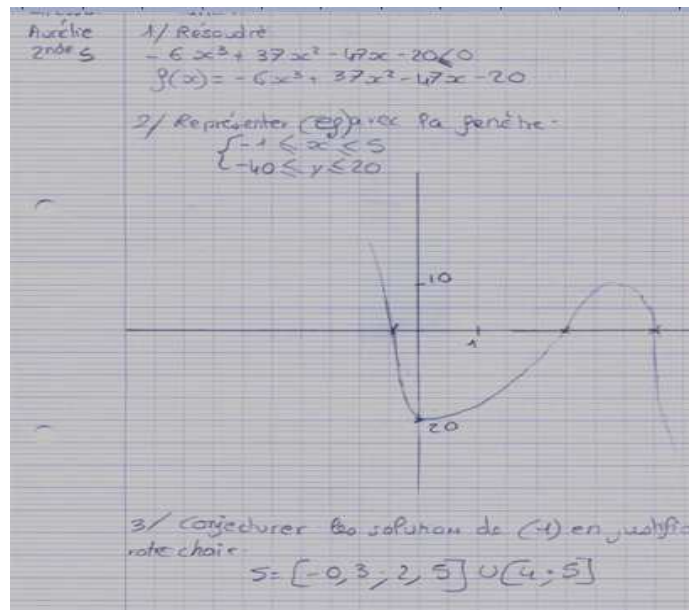 Aurélie
2nde 5
1/ Résoudre
- 6x³ + 37x² - 47x - 20 < 0
f(x) = - 6x³ + 37x² - 47x - 20
2/ Représenter (Cf) avec la fenêtre.
{-1 ⩽ x ⩽ 5
{-40 ⩽ y ⩽ 20
10
1
20
3/ Conjecturer les solution de (1) en justifia
votre choix.
S = [-0,3 ; 2,5] U [4 ; 5]